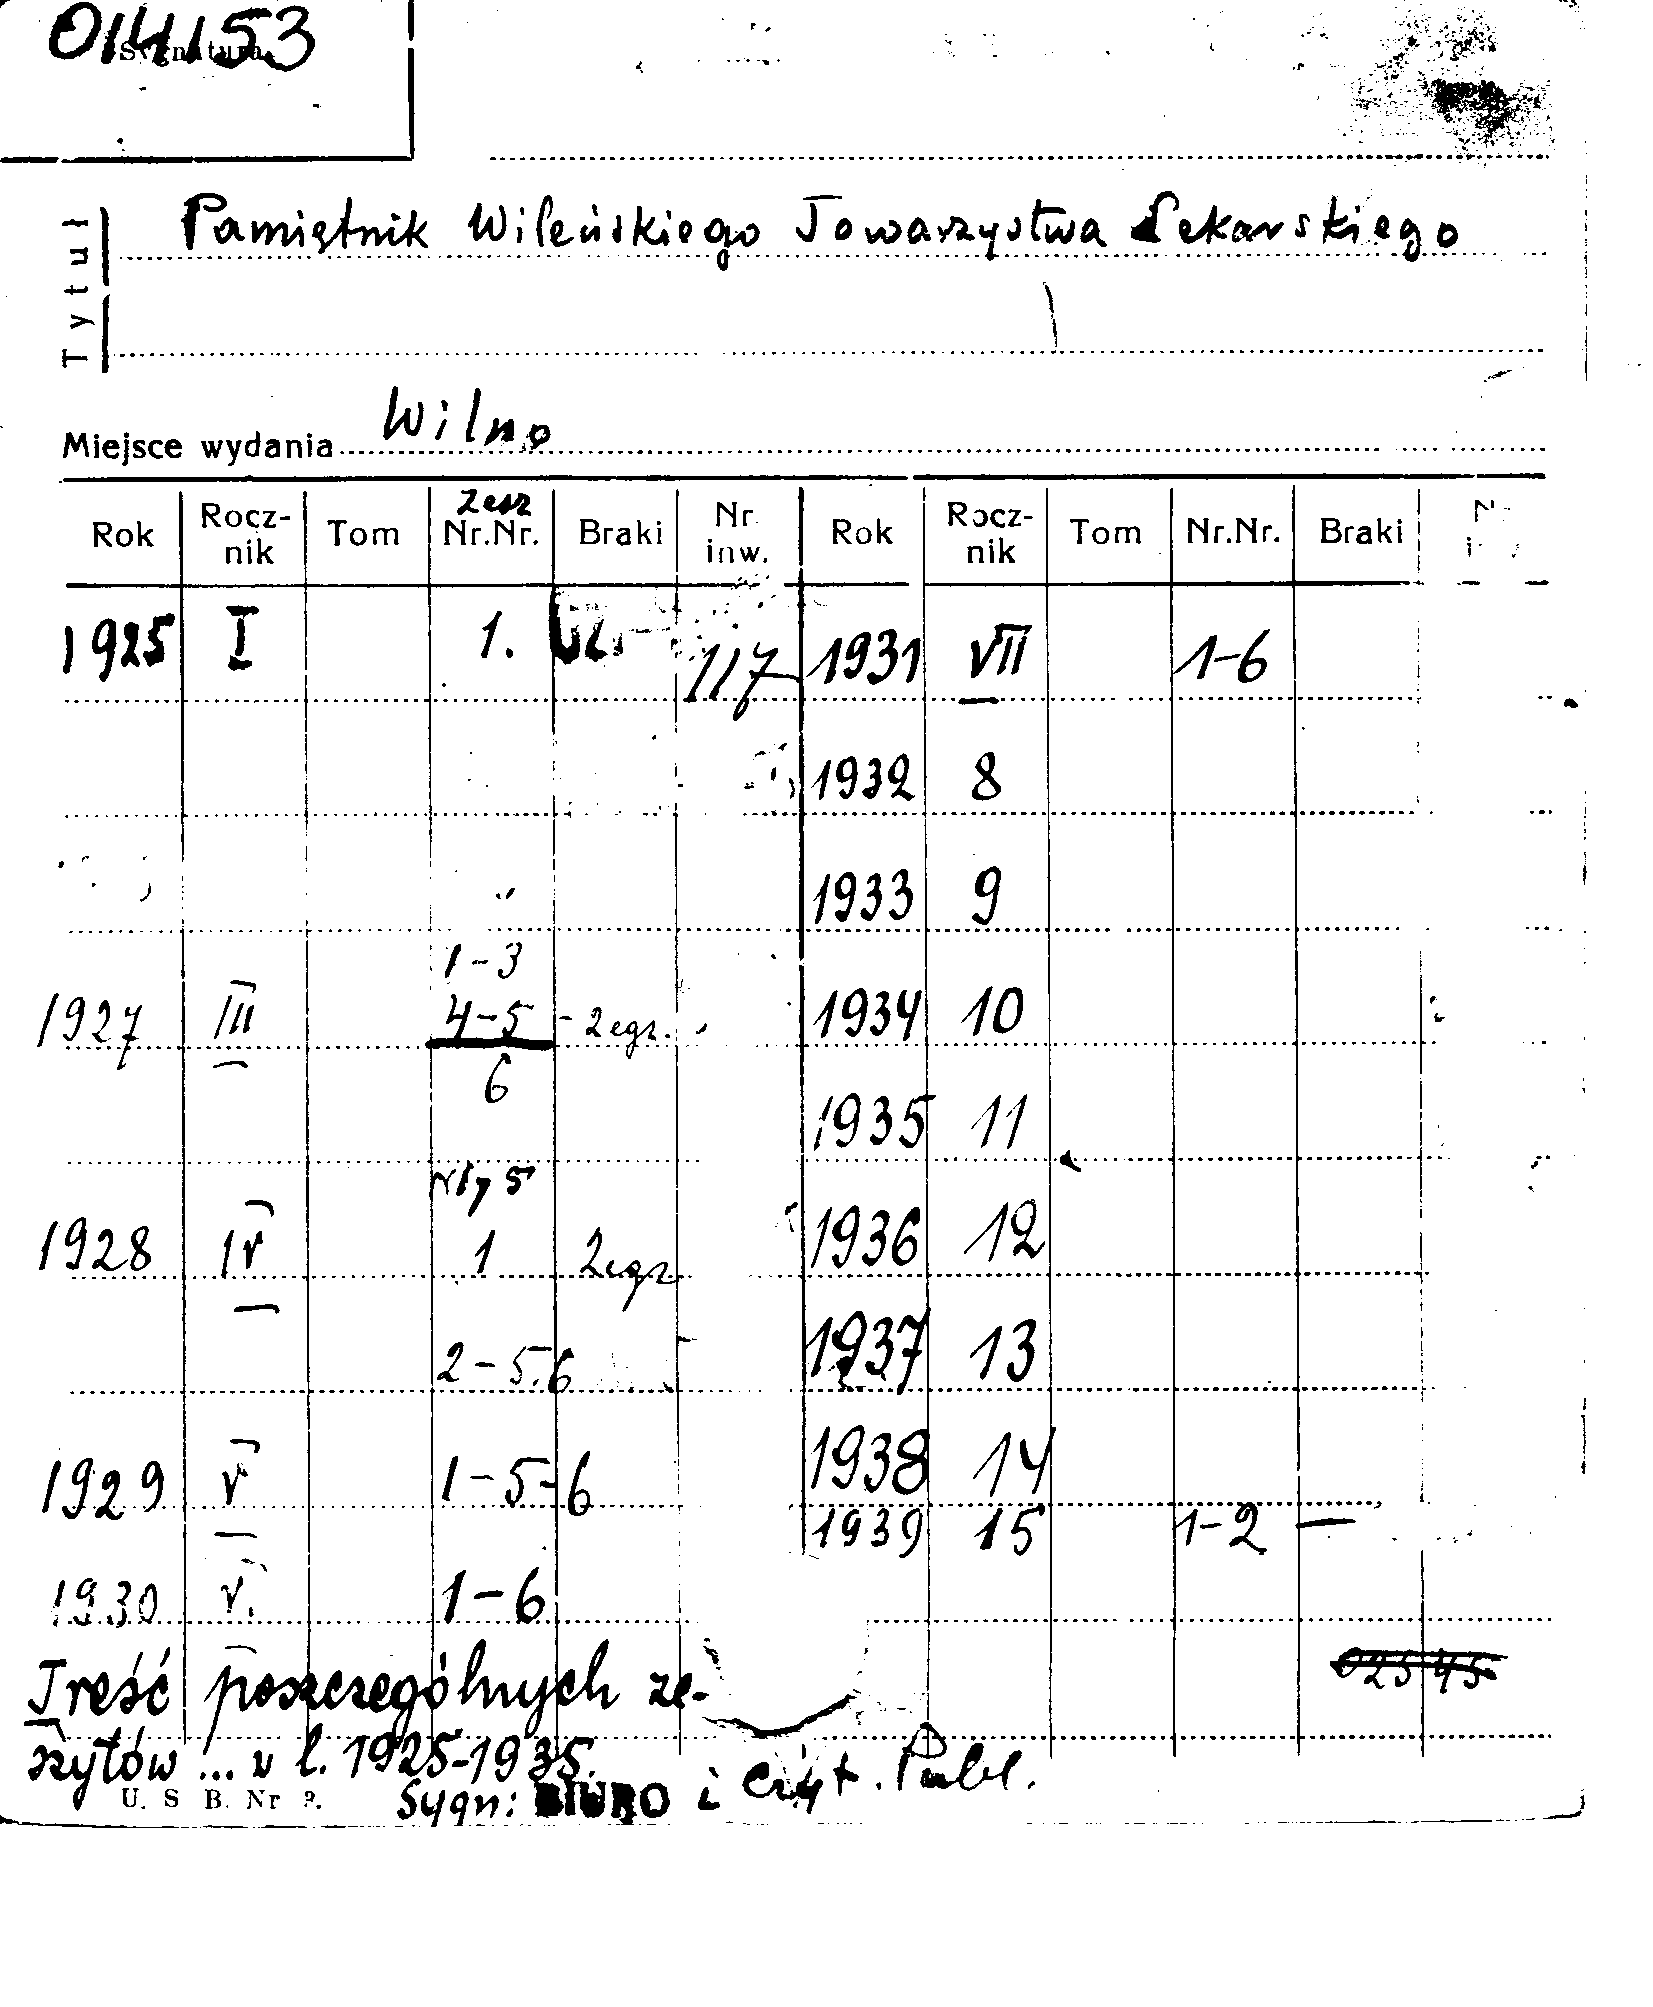 014153
Sygnatura
Tytuł
Pamiętnik Wileńskiego Towarzystwa Lekarskiego
Miejsce wydania Wilno
Rok Rocz-nik Tom Zesz Nr.Nr. Braki Nr inw. Rok Rocz-nik Tom Nr.Nr. Braki
1925 I 1. 117 1931 VII 1-6
1932 8
1933 9
1-3
1927 III 4-5 - 2 egz. 1934 10
6
1935 11
5
1928 IV 1 2 egz 1936 12
2-5.6 1937 13
1929 V 1-5-6 1938 14
1939 15 1-2 —
1930 V. 1-6
02545
Treść poszczególnych ze-
szytów ... v l. 1925-1935.
U. S B. Nr
Sygn: BIURO i Czyt. Publ.